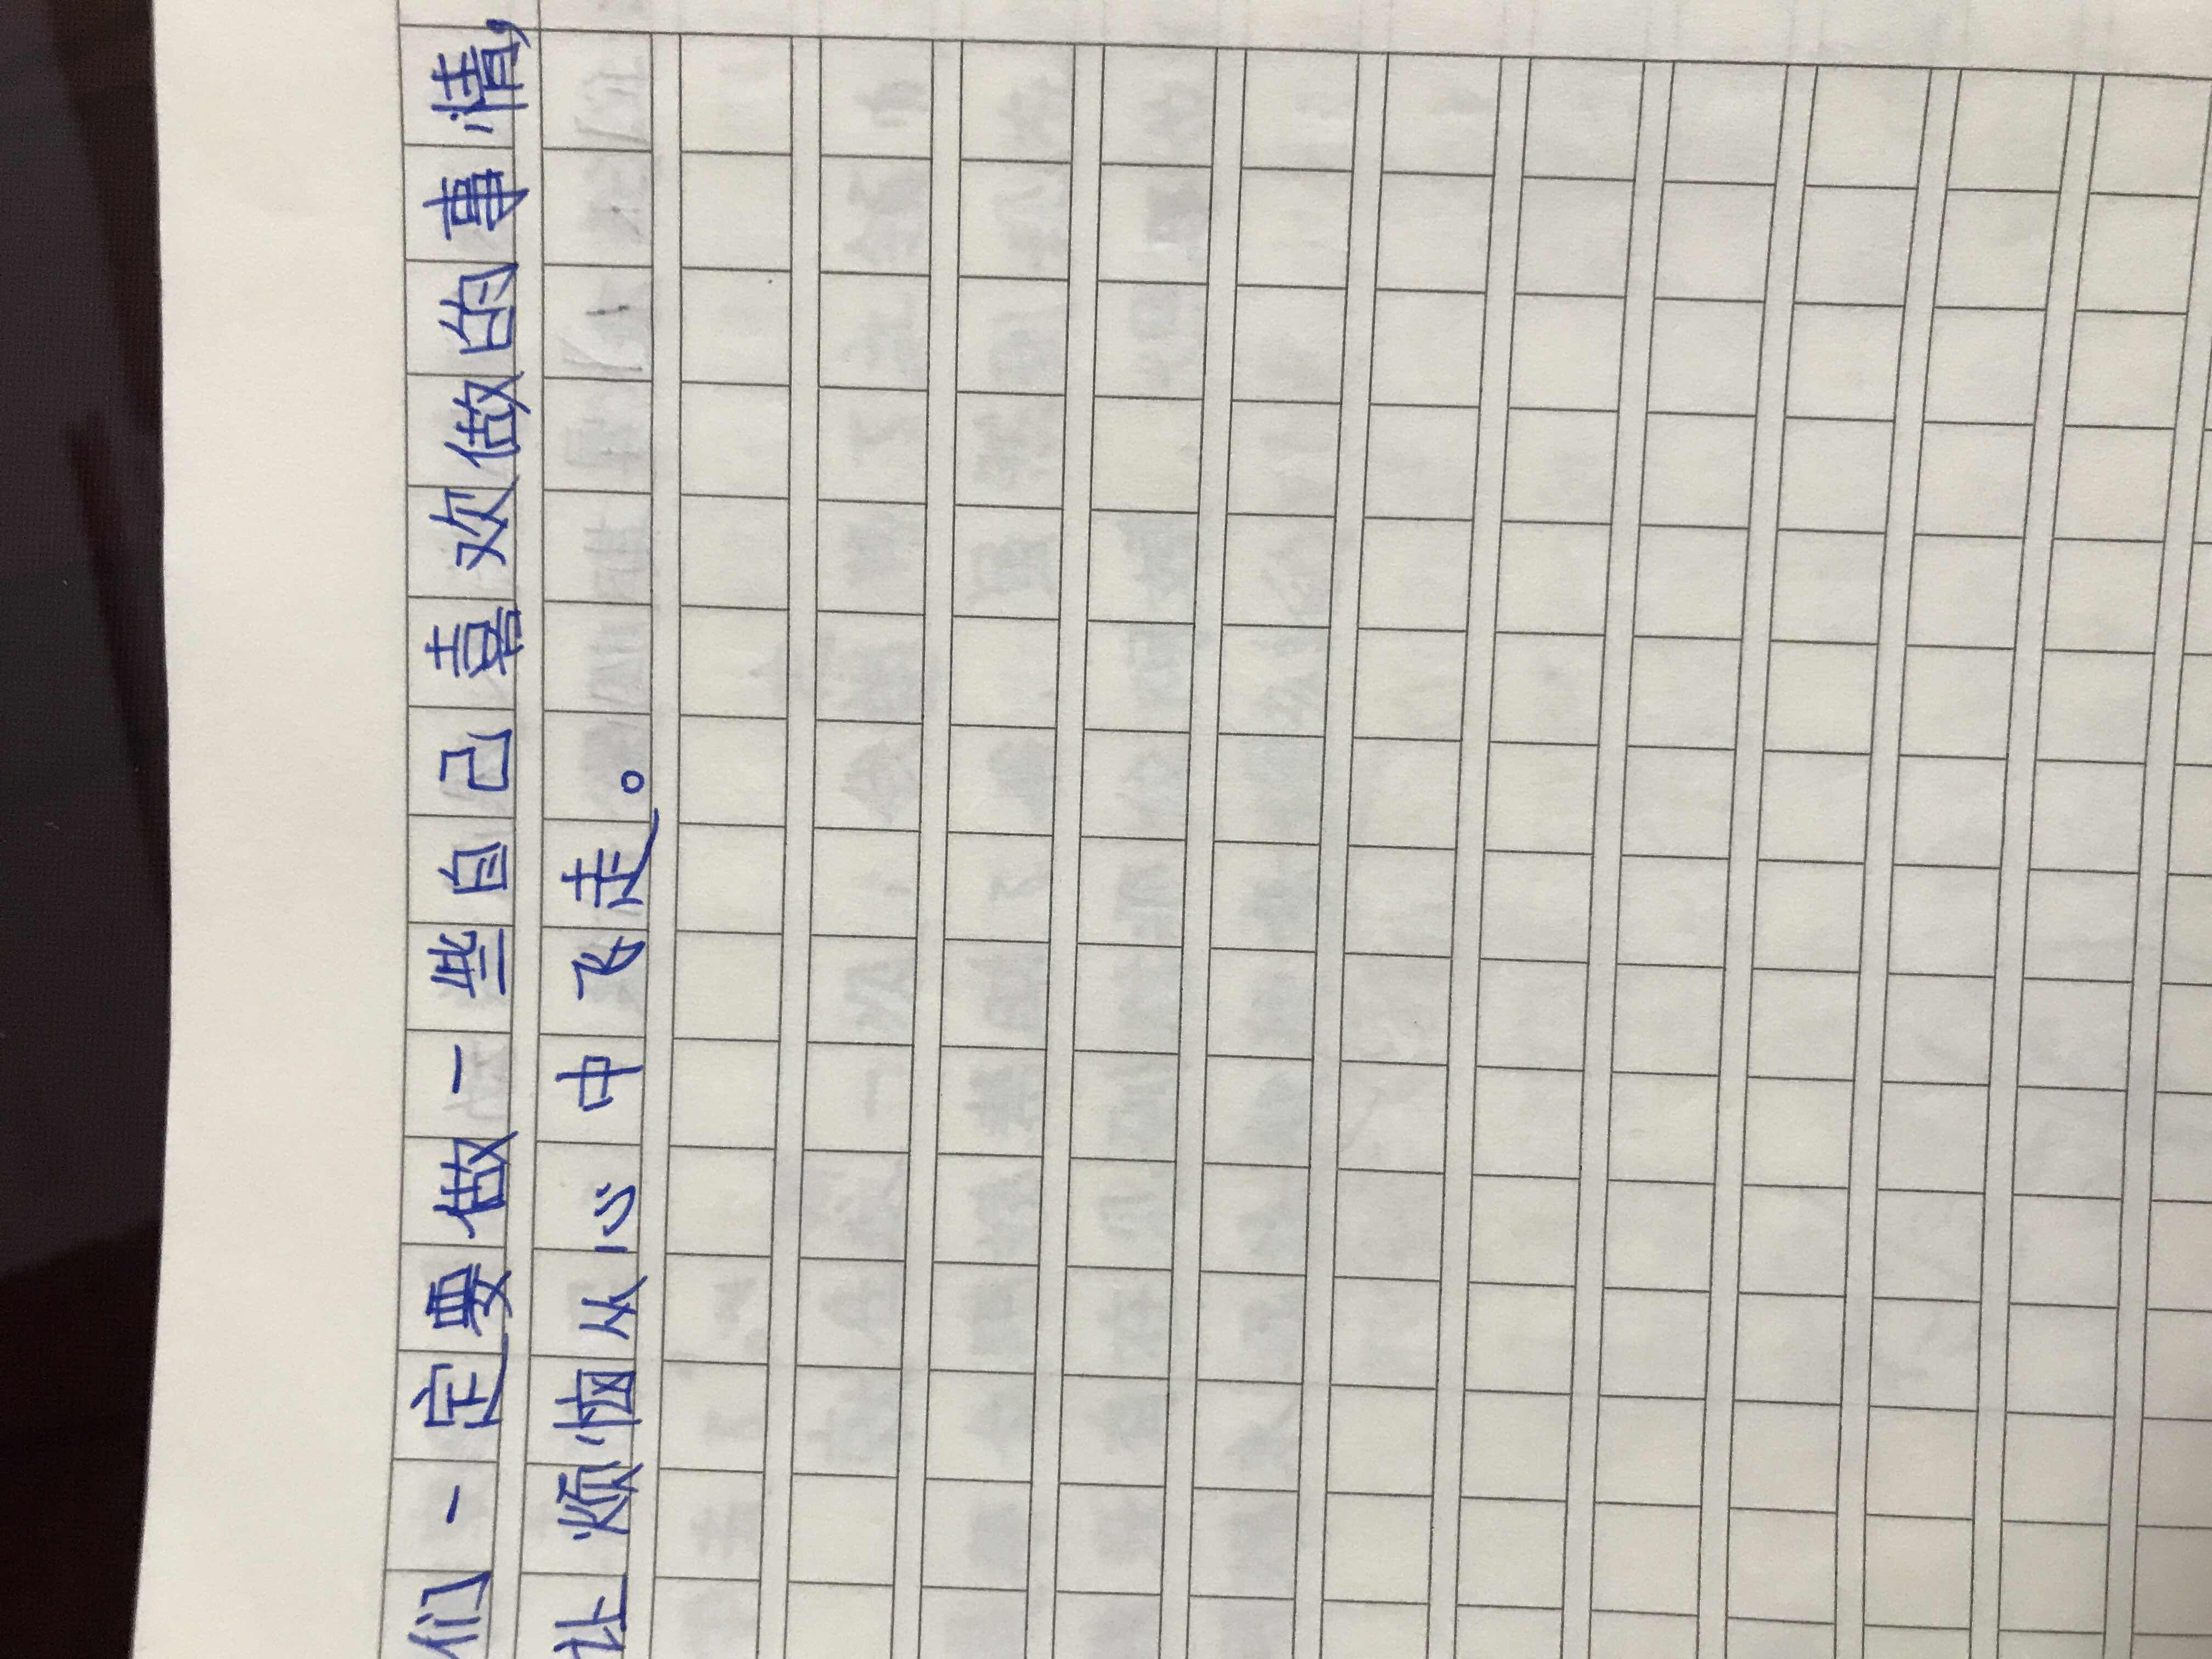 们一定要做一些自己喜欢做的事情，
让烦恼从心中飞走。